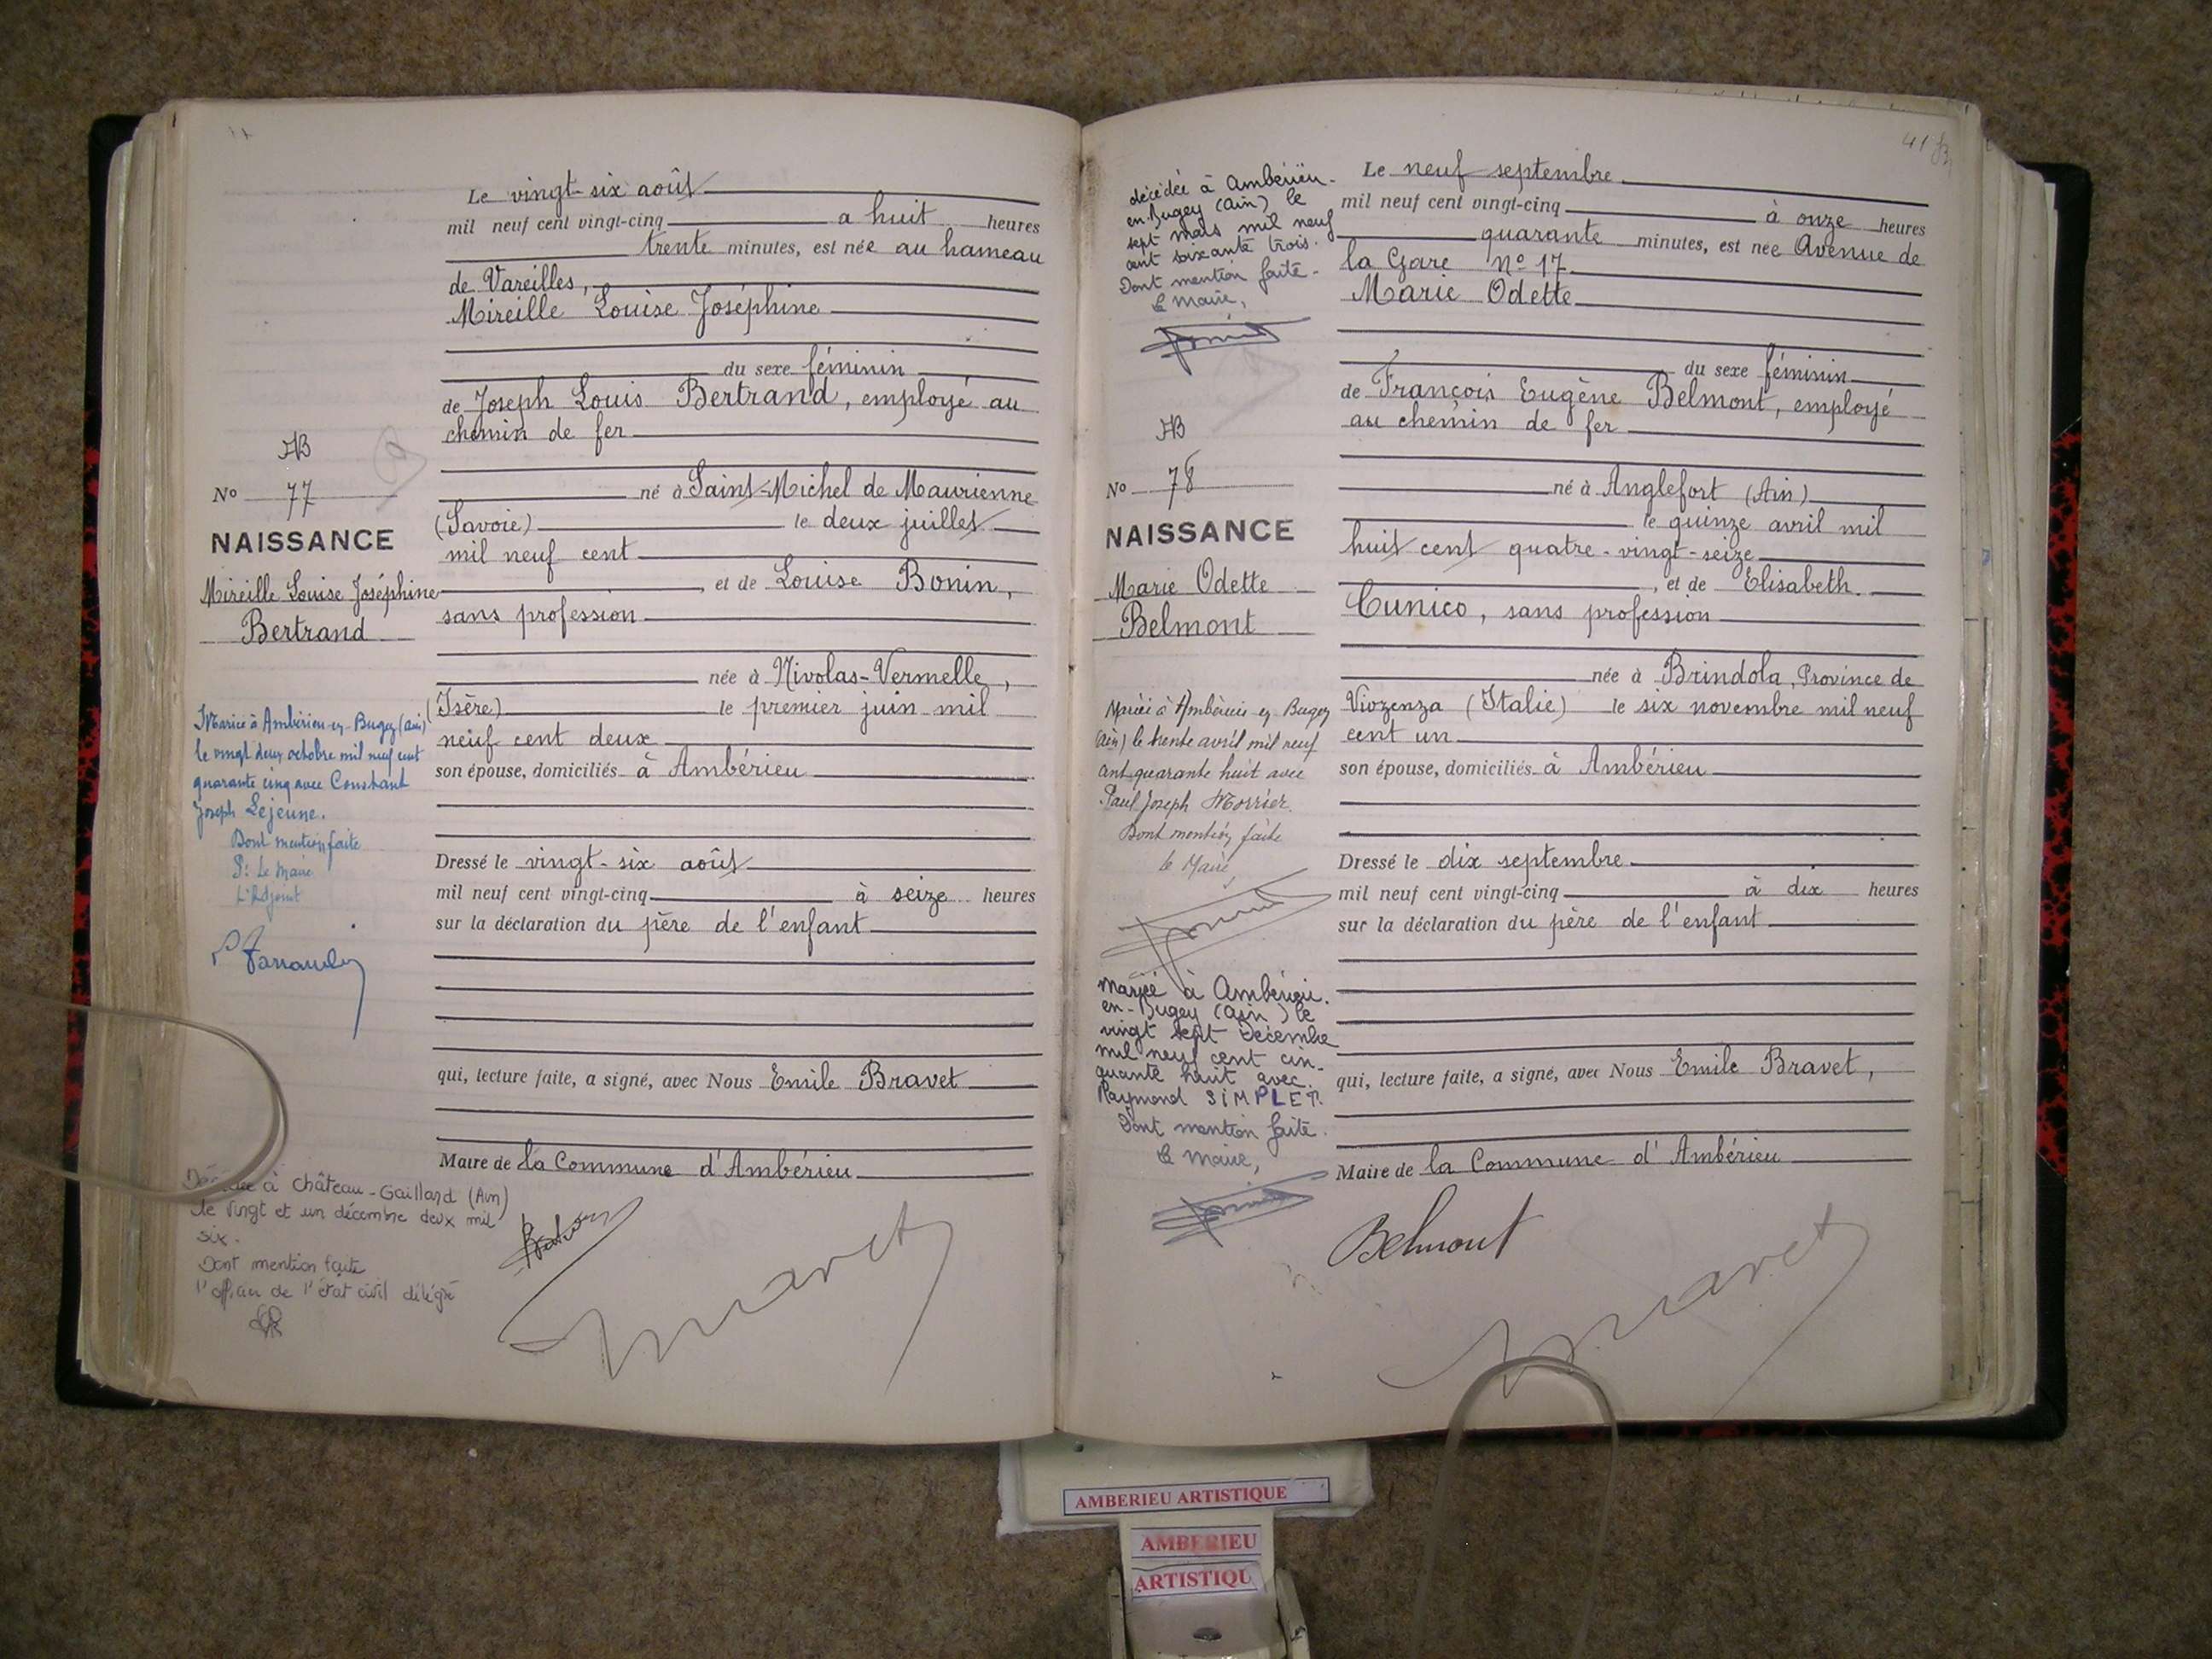 Le vingt-six août
mil neuf cent vingt-cinq a huit heures
trente minutes, est née au hameau
de Vareilles,
Mireille Louise Joséphine
du sexe féminin
de Joseph Louis Bertrand, employé au
chemin de fer
né à Saint-Michel de Maurienne
(Savoie) le deux juillet
mil neuf cent
et de Louise Bonin,
sans profession
née à Nivolas-Vermelle,
(Isère) le premier juin mil
neuf cent deux
son épouse, domiciliés à Ambérieu
Dressé le vingt-six août
mil neuf cent vingt-cinq à seize heures
sur la déclaration du père de l'enfant
qui, lecture faite, a signé, avec Nous Emile Bravet
Maire de la Commune d'Ambérieu
AB
No 77
NAISSANCE
Mireille Louise Joséphine
Bertrand
Mariée à Ambérieu-en-Bugey (Ain)
le vingt deux octobre mil neuf cent
quarante cinq avec Constant
Joseph Lejeune.
Dont mention faite
P: Le Maire
L'Adjoint
Décédée à Château-Gaillard (Ain)
le vingt et un décembre deux mil
six.
Dont mention faite
l'officier de l'état civil délégué
41
décédée à Ambérieu-
en-Bugey (Ain) le
sept mars mil neuf
cent soixante trois.
Dont mention faite-
le Maire,
AB
No 78
NAISSANCE
Marie Odette
Belmont
Mariée à Ambérieu en Bugey
(Ain) le trente avril mil neuf
cent quarante huit avec
Paul Joseph Morrier.
Dont mention faite
le Maire,
mariée à Ambérieu.
en-Bugey (Ain) le
vingt sept décembre
mil neuf cent cin-
quante huit avec.
Raymond SIMPLET.
Dont mention faite.
le Maire,
Le neuf septembre
mil neuf cent vingt-cinq à onze heures
quarante minutes, est née Avenue de
la Gare No 17
Marie Odette
du sexe féminin
de François Eugène Belmont, employé
au chemin de fer
né à Anglefort (Ain)
le quinze avril mil
huit cent quatre-vingt-seize
, et de Elisabeth
Cunico, sans profession
née à Brindola, Province de
Viozenza (Italie) le six novembre mil neuf
cent un
son épouse, domiciliés à Ambérieu
Dressé le dix septembre
mil neuf cent vingt-cinq à dix heures
sur la déclaration du père de l'enfant
qui, lecture faite, a signé, avec Nous Emile Bravet,
Maire de la Commune d'Ambérieu
Belmont
Bravet
AMBERIEU ARTISTIQUE
AMBERIEU
ARTISTIQU